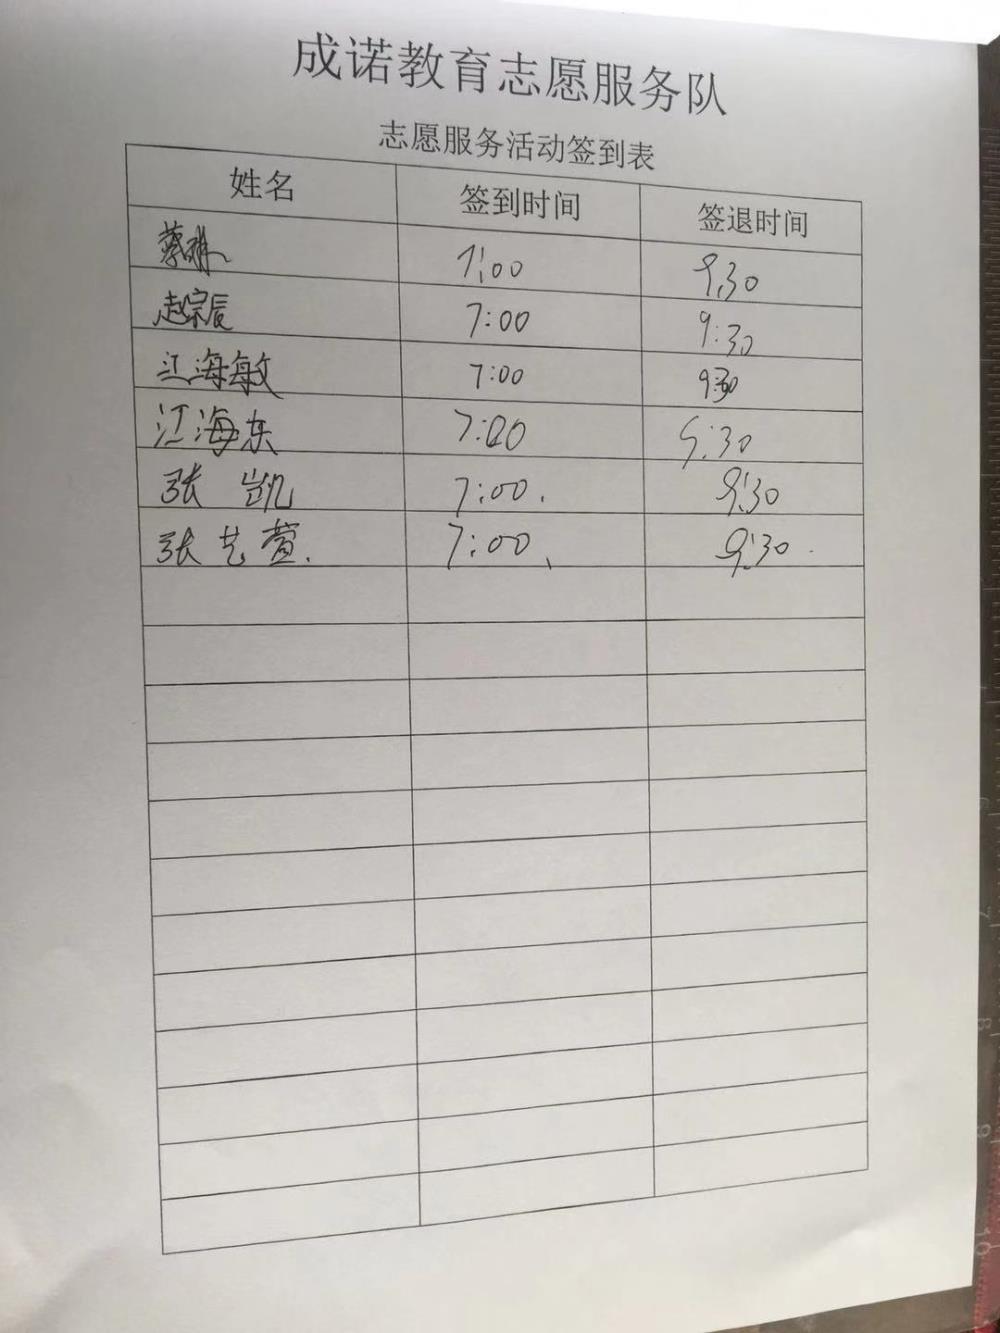 成诺教育志愿服务队
志愿服务活动签到表
姓名 签到时间 签退时间
蔡琳 7:00 9:30
赵宗辰 7:00 9:30
江海敏 7:00 9:30
江海东 7:00 9:30
张凯 7:00. 9:30
张艺萱. 7:00、 9:30